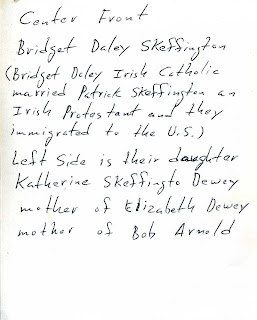 Center Front
Bridget Daley Skeffington
(Bridget Daley Irish Catholic
married Patrick Skeffington an
Irish Protestant and they
immigrated to the U.S.)
Left Side is their daughter
Katherine Skeffingto Dewey
mother of Elizabeth Dewey
mother of Bob Arnold